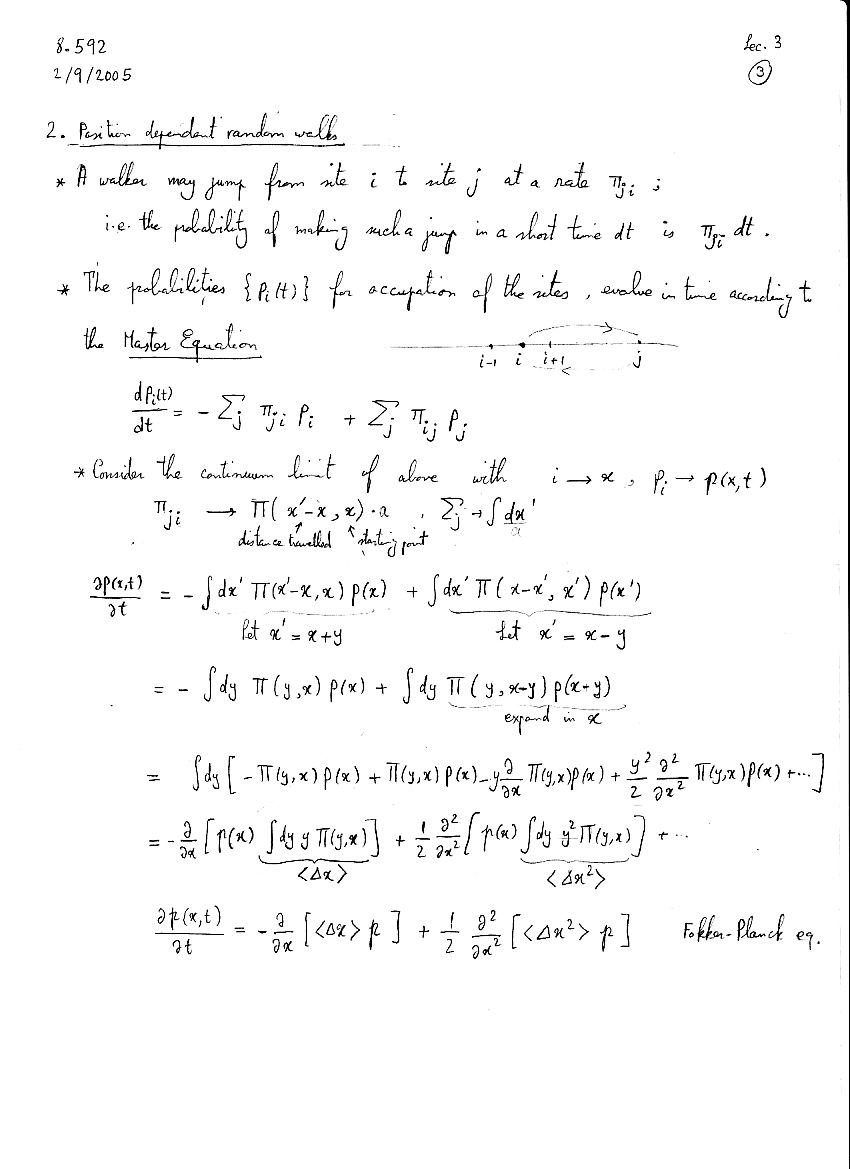 8.592
Lec. 3
2/9/2005
3
2. Position dependent random walks
* A walker may jump from site i to site j at a rate π_{ji} ;
i.e. the probability of making such a jump in a short time dt is π_{ji} dt .
* The probabilities {p_i(t)} for occupation of the sites , evolve in time according to
the Master Equation
i-1 i i+1 j
dp_i(t)/dt = - Σ_j π_{ji} p_i + Σ_j π_{ij} p_j
* Consider the continuum limit of above with i → x , p_i → p(x,t)
π_{ji} → Π( x'-x , x) · a , Σ_j → ∫ dx'/a
distance travelled starting point
∂p(x,t)/∂t = - ∫dx' Π(x'-x, x) p(x) + ∫dx' Π( x-x', x') p(x')
let x' = x+y let x' = x-y
= - ∫dy Π(y,x) p(x) + ∫dy Π( y, x-y) p(x-y)
expand in x
= ∫dy [ - Π(y,x) p(x) + Π(y,x) p(x) - y ∂/∂x Π(y,x)p(x) + y²/2 ∂²/∂x² Π(y,x)p(x) + ... ]
= - ∂/∂x [ p(x) ∫dy y Π(y,x) ] + 1/2 ∂²/∂x² [ p(x) ∫dy y² Π(y,x) ] + ...
<Δx> <Δx²>
∂p(x,t)/∂t = - ∂/∂x [ <Δx> p ] + 1/2 ∂²/∂x² [ <Δx²> p ] Fokker-Planck eq.